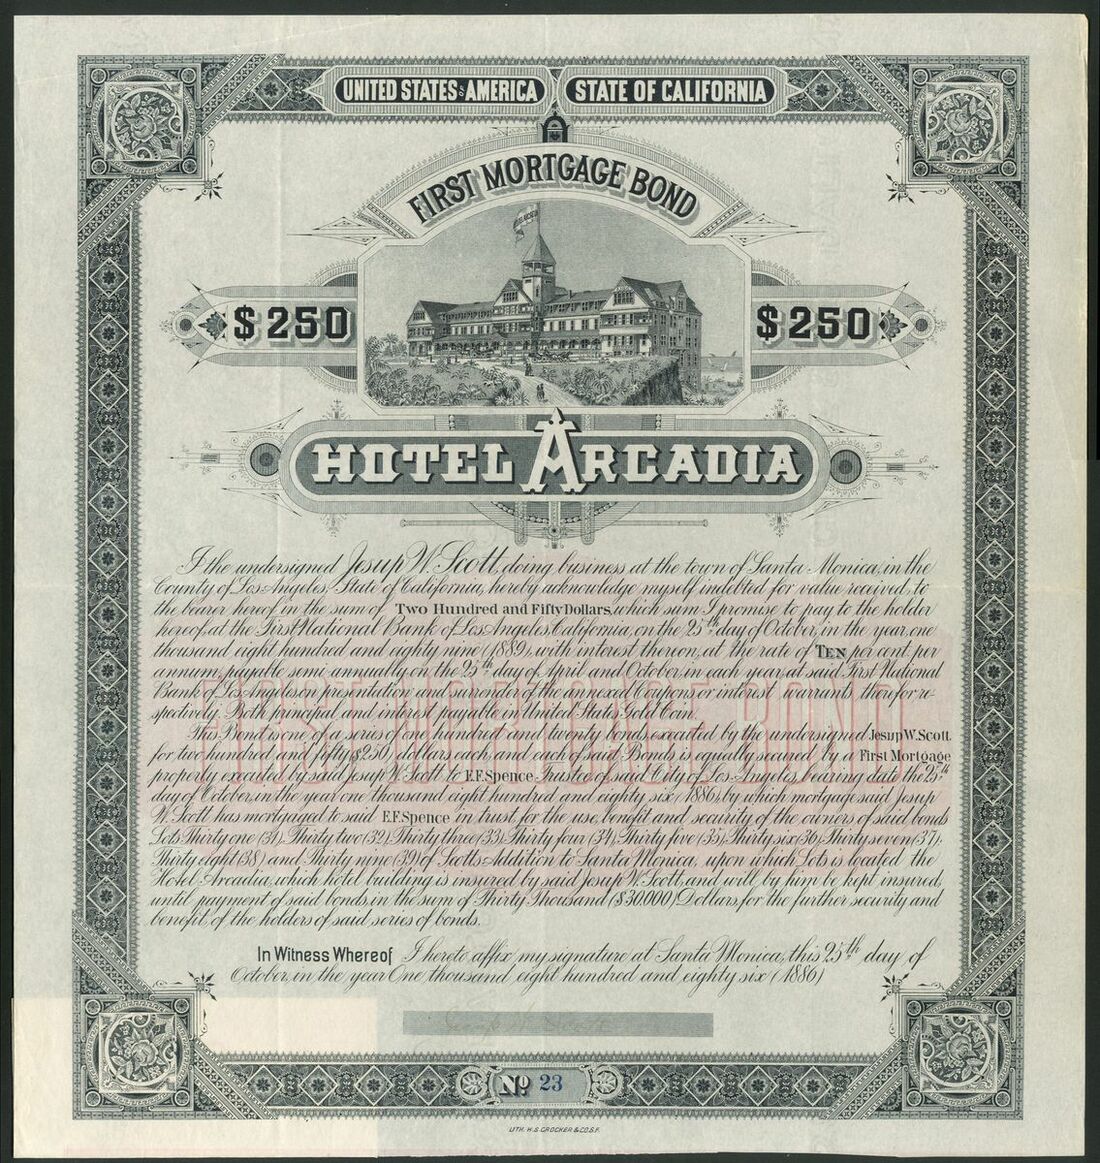 UNITED STATES OF AMERICA STATE OF CALIFORNIA
FIRST MORTGAGE BOND
HOTEL ARCADIA
$250 $250
HOTEL ARCADIA
I the undersigned Jesup W. Scott, doing business at the town of Santa Monica, in the
County of Los Angeles, State of California, hereby acknowledge myself indebted for value received, to
the bearer hereof in the sum of Two Hundred and Fifty Dollars, which sum I promise to pay to the holder
hereof, at the First National Bank of Los Angeles, California, on the 25th day of October, in the year, one
thousand eight hundred and eighty nine (1889), with interest thereon, at the rate of TEN per cent per
annum, payable semi annually on the 25th day of April and October, in each year, at said First National
Bank of Los Angeles, on presentation and surrender of the annexed Coupons or interest warrants, therefor re-
spectively. Both principal and interest payable in United States Gold Coin.
This Bond is one of a series of one hundred and twenty bonds, executed by the undersigned Jesup W. Scott.
for two hundred and fifty ($250) dollars each, and each of said Bonds is equally secured by a First Mortgage
property executed by said Jesup W. Scott to E.F. Spence Trustee of said City of Los Angeles, bearing date the 25th
day of October, in the year one thousand eight hundred and eighty six (1886), by which mortgage said Jesup
W. Scott has mortgaged to said E.F. Spence in trust for the use, benefit and security of the owners of said bonds
Lots Thirty one (31), Thirty two (32), Thirty three (33), Thirty four (34), Thirty five (35), Thirty six (36), Thirty seven (37),
Thirty eight (38) and Thirty nine (39) of Scott's Addition to Santa Monica, upon which Lots is located the
Hotel Arcadia, which hotel building is insured by said Jesup W. Scott, and will by him be kept insured,
until payment of said bonds, in the sum of Thirty Thousand ($30.000) Dollars, for the further security and
benefit, of the holders of said series of bonds.
FIRST MORTGAGE BOND
In Witness Whereof I hereto affix my signature at Santa Monica, this 25th day of
October, in the year One thousand eight hundred and eighty six (1886)
No 23
LITH. H.S. CROCKER & CO. S.F.